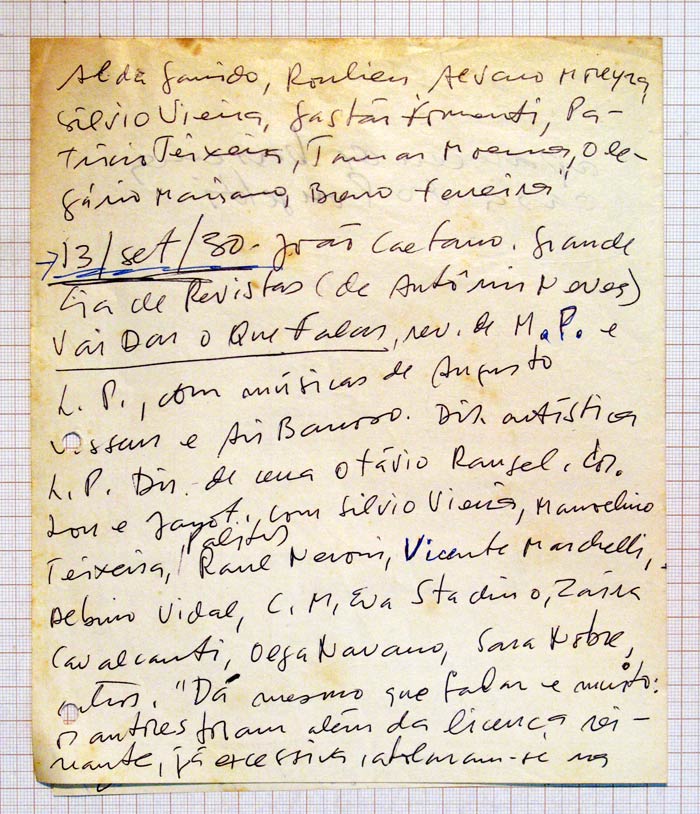 Alda Garrido, Roulien, Alvaro Moreyra,
Silvio Vieira, Gastão Formenti, Pa-
tricio Teixeira, Tamar Moema, Ole-
gário Mariano, Breno Ferreira"
13/set/30 - João Caetano. Grande
Cia de Revistas (de Antônio Neves)
Vai Dar o Que Falar, rev. de M.P. e
L. P., com músicas de Augusto
Vasseur e Ari Barroso. Dir. artística
L.P. Dir. de cena Otávio Rangel. Cor.
Lou e Janot. Com Silvio Vieira, Manoelino
Teixeira, Palitos
Raul Neroni, Vicente Marchelli,
Albino Vidal, C. M, Eva Stachino, Zaira
Cavalcanti, Olga Navarro, Sara Nobre,
outros. "Dá mesmo que falar e muito:
os autores foram além da licença rei-
nante, já excessiva, atolaram-se na